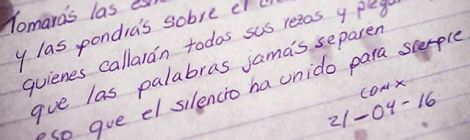 Tomarás las
y las pondrás sobre el
quienes callarán todas sus rezas y
que las palabras jamás separen
eso que el silencio ha unido para siempre
COMX
21-04-16